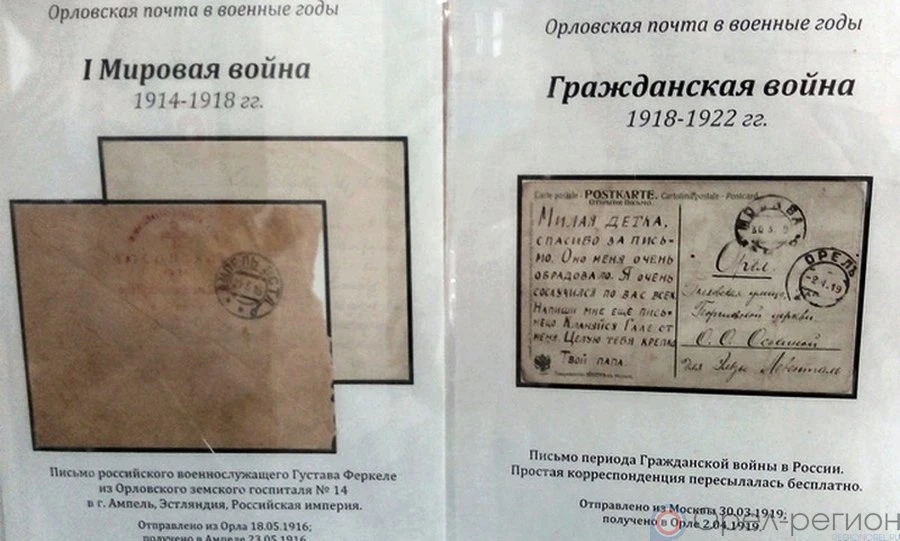 Орловская почта в военные годы
I Мировая война
1914-1918 гг.
Письмо российского военнослужащего Густава Феркеле
из Орловского земского госпиталя № 14
в г. Ампель, Эстляндия, Российская империя.
Отправлено из Орла 18.05.1916;
получено в Ампеле 23.05.1916
Орловская почта в военные годы
Гражданская война
1918-1922 гг.
Carte postale - POSTKARTE. Cartolina postale - Postcard
Открытое письмо.
МИЛАЯ ДЕТКА,
СПАСИБО ЗА ПИСЬ-
МО. ОНО МЕНЯ ОЧЕНЬ
ОБРАДОВАЛО. Я ОЧЕНЬ
СОСКУЧИЛСЯ ПО ВАС ВСЕХ
НАПИШИ МНЕ ЕЩЕ ПИСЬ-
МЕЦО КЛАНЯЙСЯ ГАЛЕ ОТ
МЕНЯ. ЦЕЛУЮ ТЕБЯ КРЕПКО
ТВОЙ ПАПА.
МОСКВА
ОРЕЛЪ
2.4.19
Орел.
церкви
О. О.
для
Письмо периода Гражданской войны в России.
Простая корреспонденция пересылалась бесплатно.
Отправлено из Москвы 30.03.1919;
получено в Орле 2.04.1919.
Орел-регион
REGIONOREL.RU